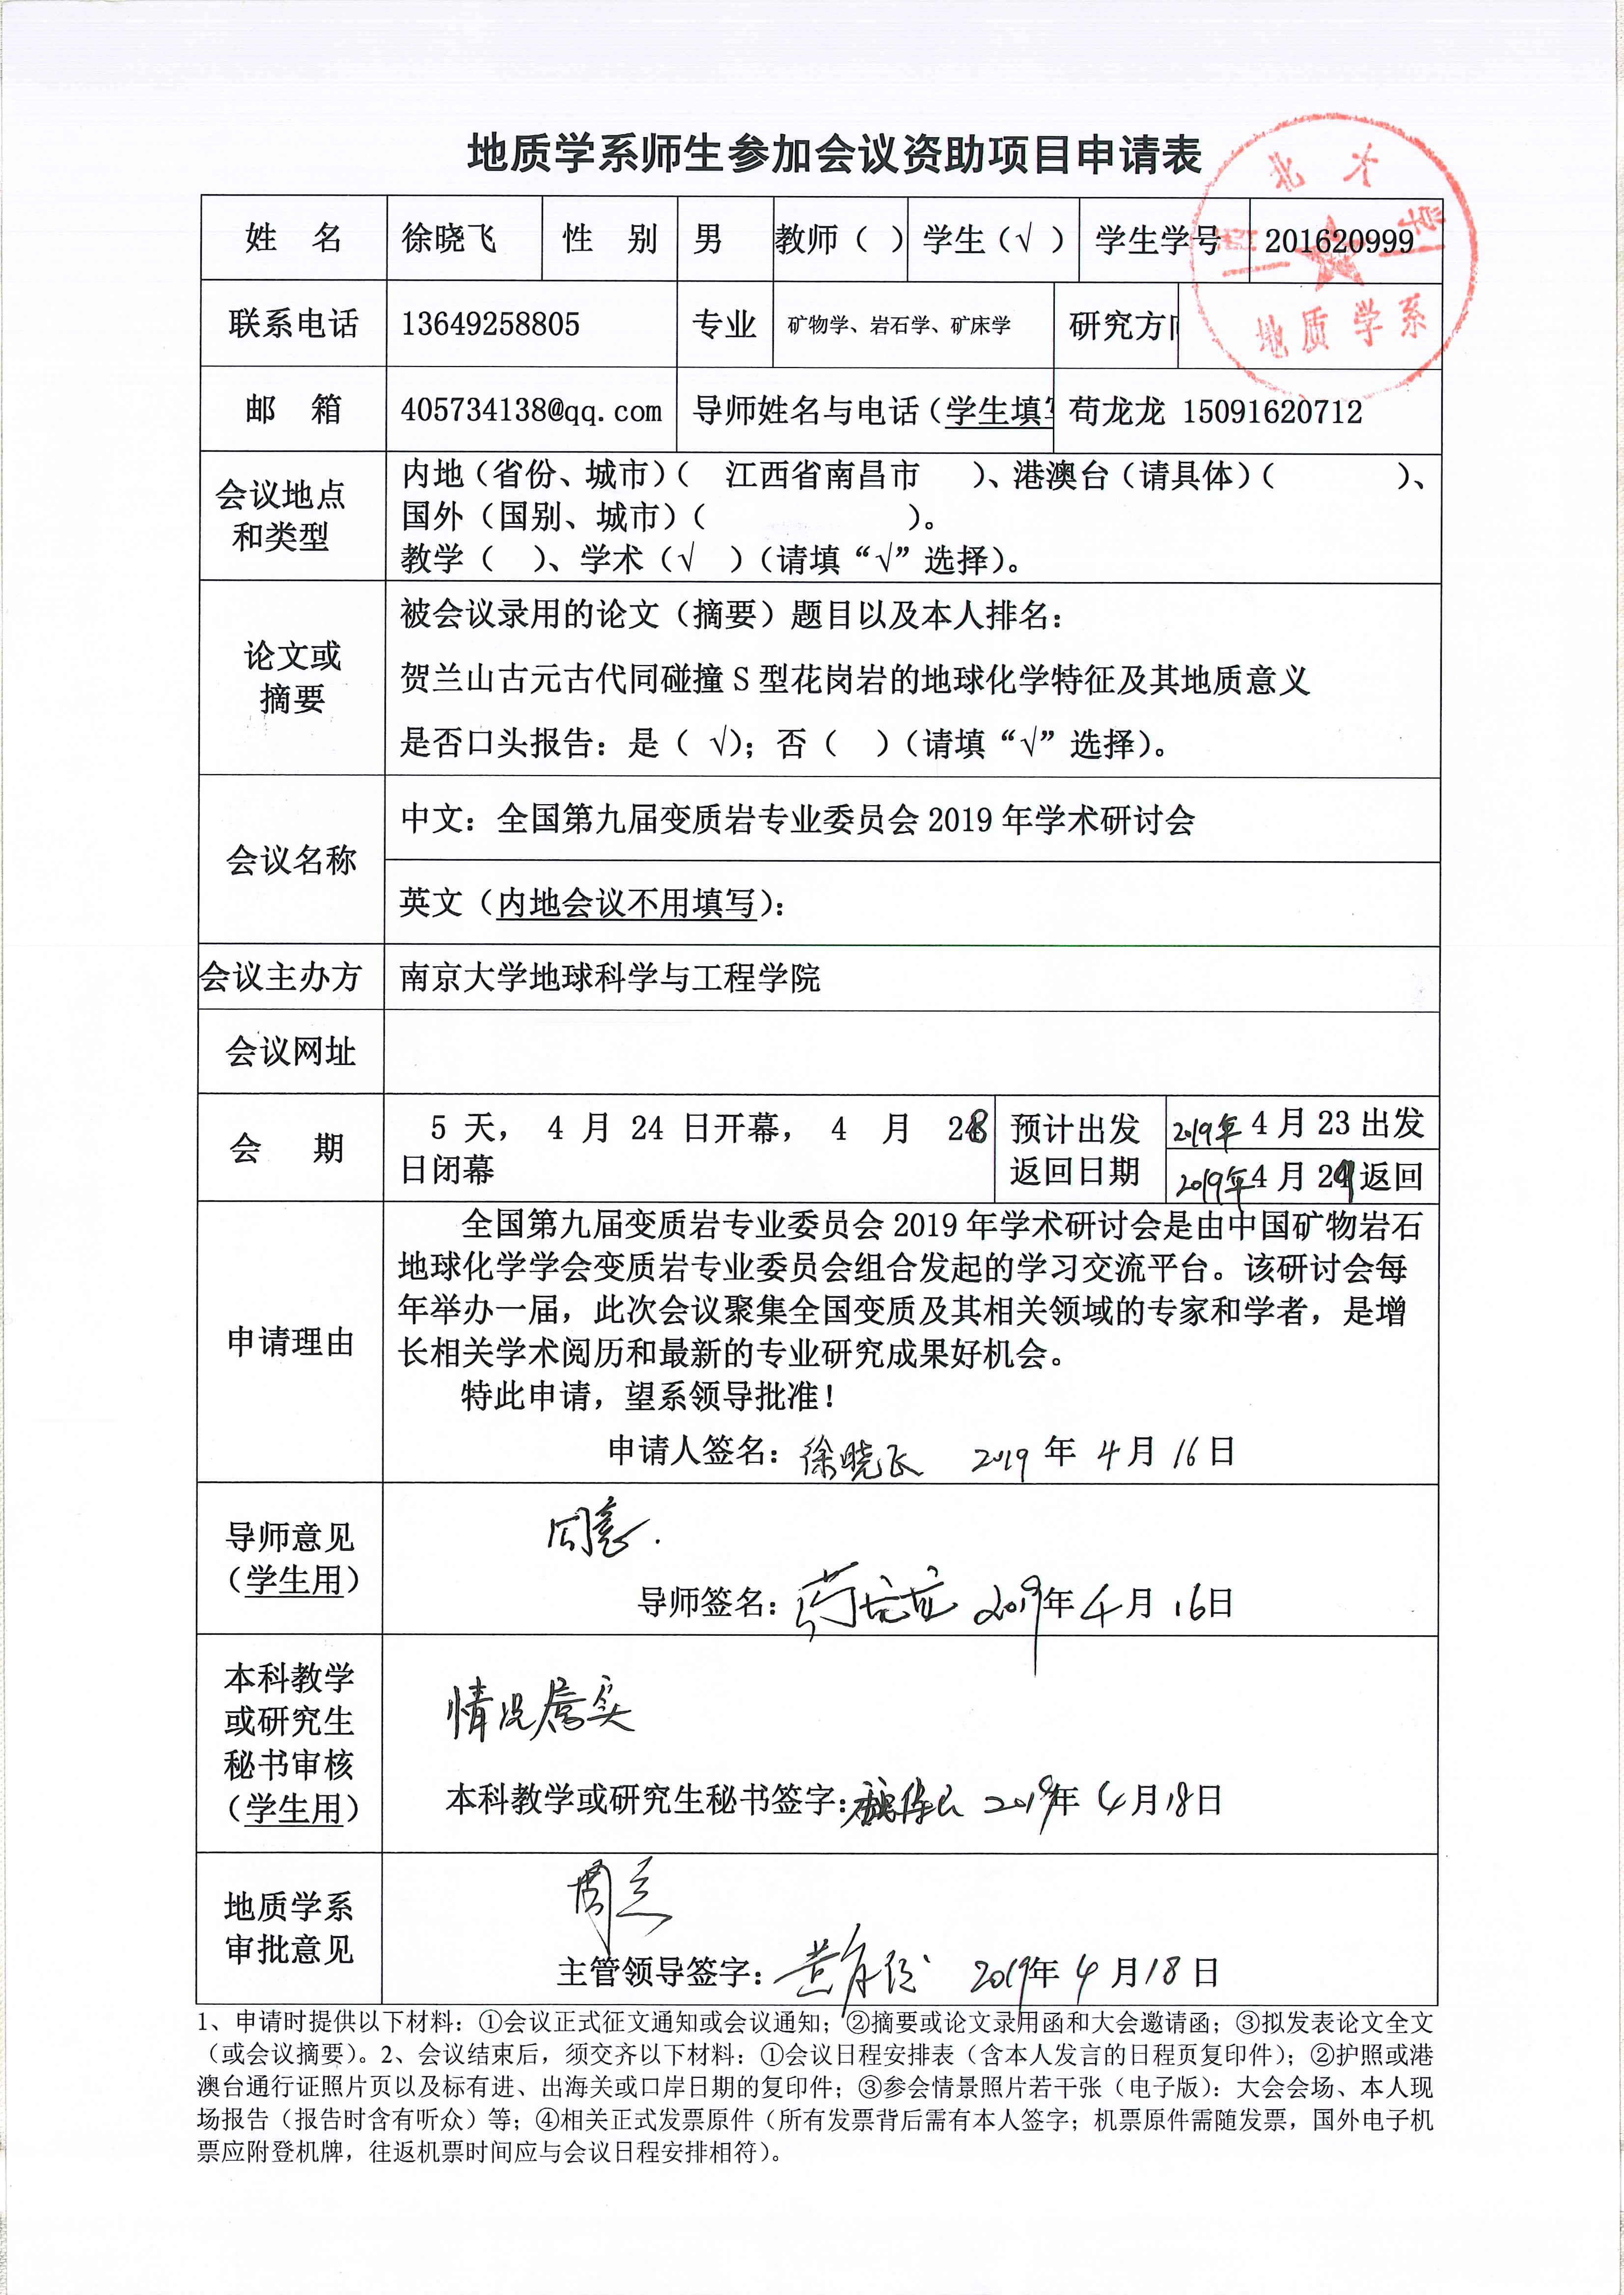 地质学系师生参加会议资助项目申请表
北 大 学
地质学系
姓 名 徐晓飞 性 别 男 教师（ ） 学生（√ ） 学生学号 201620999
联系电话 13649258805 专业 矿物学、岩石学、矿床学 研究方向
邮 箱 405734138@qq.com 导师姓名与电话（学生填写 苟龙龙 15091620712
会议地点
和类型
内地（省份、城市）（ 江西省南昌市 ）、港澳台（请具体）（ ）、
国外（国别、城市）（ ）。
教学（ ）、学术（√ ）（请填“√”选择）。
论文或
摘要
被会议录用的论文（摘要）题目以及本人排名：
贺兰山古元古代同碰撞 S 型花岗岩的地球化学特征及其地质意义
是否口头报告：是（ √）；否（ ）（请填“√”选择）。
会议名称
中文：全国第九届变质岩专业委员会 2019 年学术研讨会
英文（内地会议不用填写）：
会议主办方 南京大学地球科学与工程学院
会议网址
会 期
5 天， 4 月 24 日开幕， 4 月 28
日闭幕
预计出发
返回日期
2019年 4 月 23 出发
2019年 4 月 29 返回
申请理由
全国第九届变质岩专业委员会 2019 年学术研讨会是由中国矿物岩石
地球化学学会变质岩专业委员会组合发起的学习交流平台。该研讨会每
年举办一届，此次会议聚集全国变质及其相关领域的专家和学者，是增
长相关学术阅历和最新的专业研究成果好机会。
特此申请，望系领导批准！
申请人签名：徐晓飞 2019 年 4 月 16 日
导师意见
（学生用）
同意.
导师签名：苟龙龙 2019年 4 月 16日
本科教学
或研究生
秘书审核
（学生用）
情况属实
本科教学或研究生秘书签字： 2019年 4 月18日
地质学系
审批意见
同意
主管领导签字： 2019年 4 月 18 日
1、申请时提供以下材料：①会议正式征文通知或会议通知；②摘要或论文录用函和大会邀请函；③拟发表论文全文
（或会议摘要）。2、会议结束后，须交齐以下材料：①会议日程安排表（含本人发言的日程页复印件）；②护照或港
澳台通行证照片页以及标有进、出海关或口岸日期的复印件；③参会情景照片若干张（电子版）：大会会场、本人现
场报告（报告时含有听众）等；④相关正式发票原件（所有发票背后需有本人签字；机票原件需随发票，国外电子机
票应附登机牌，往返机票时间应与会议日程安排相符）。